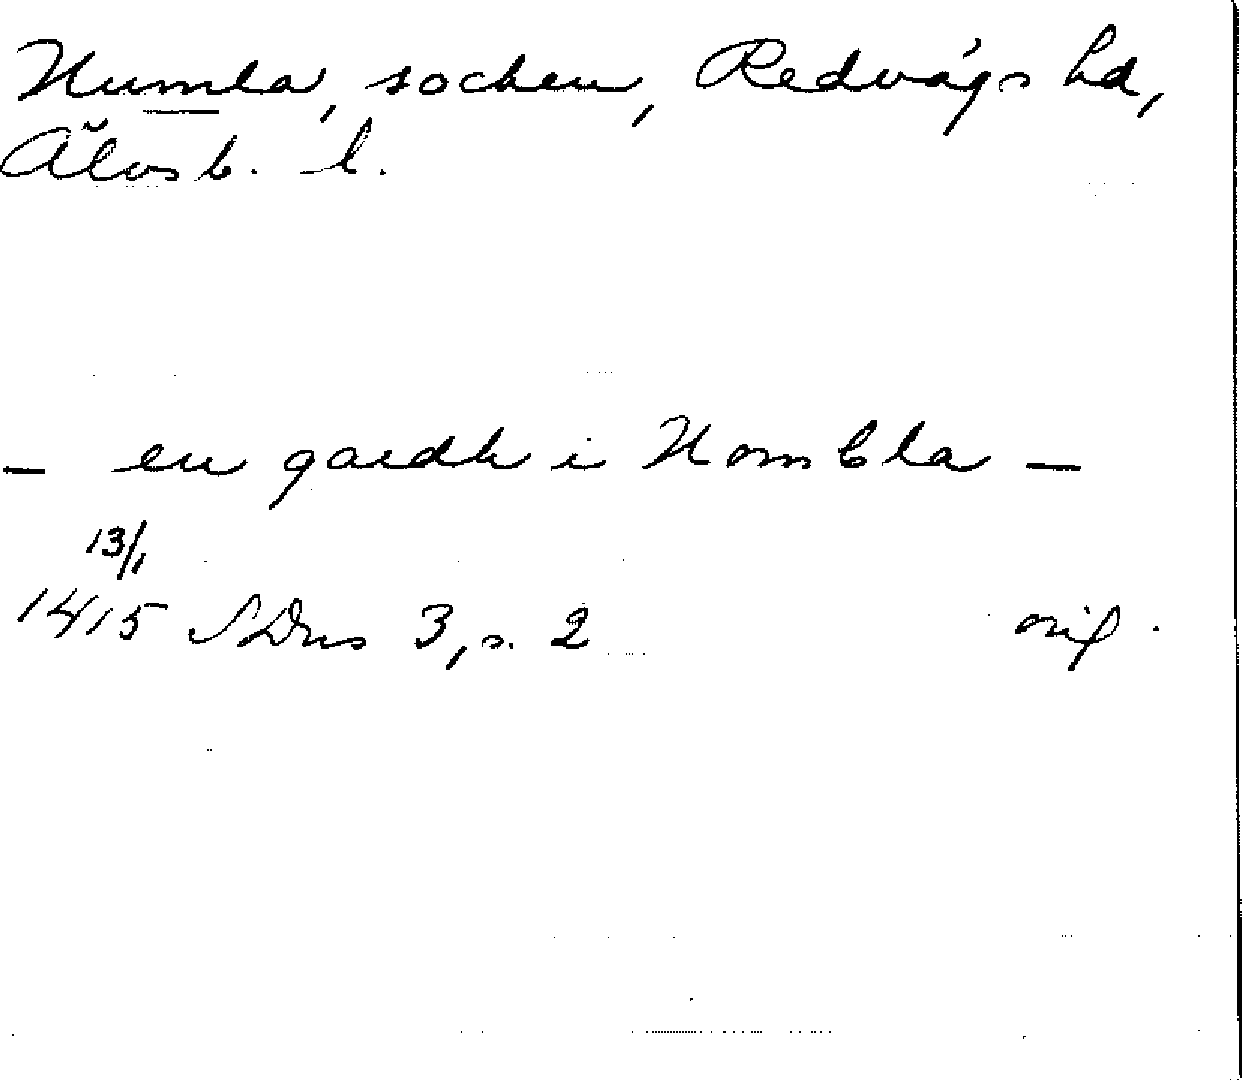 Humla, socken, Redvägs hd,
Älvsb. l.
– en gardh i Hombla –
13/1
1415 SDns 3, s. 2 orig.